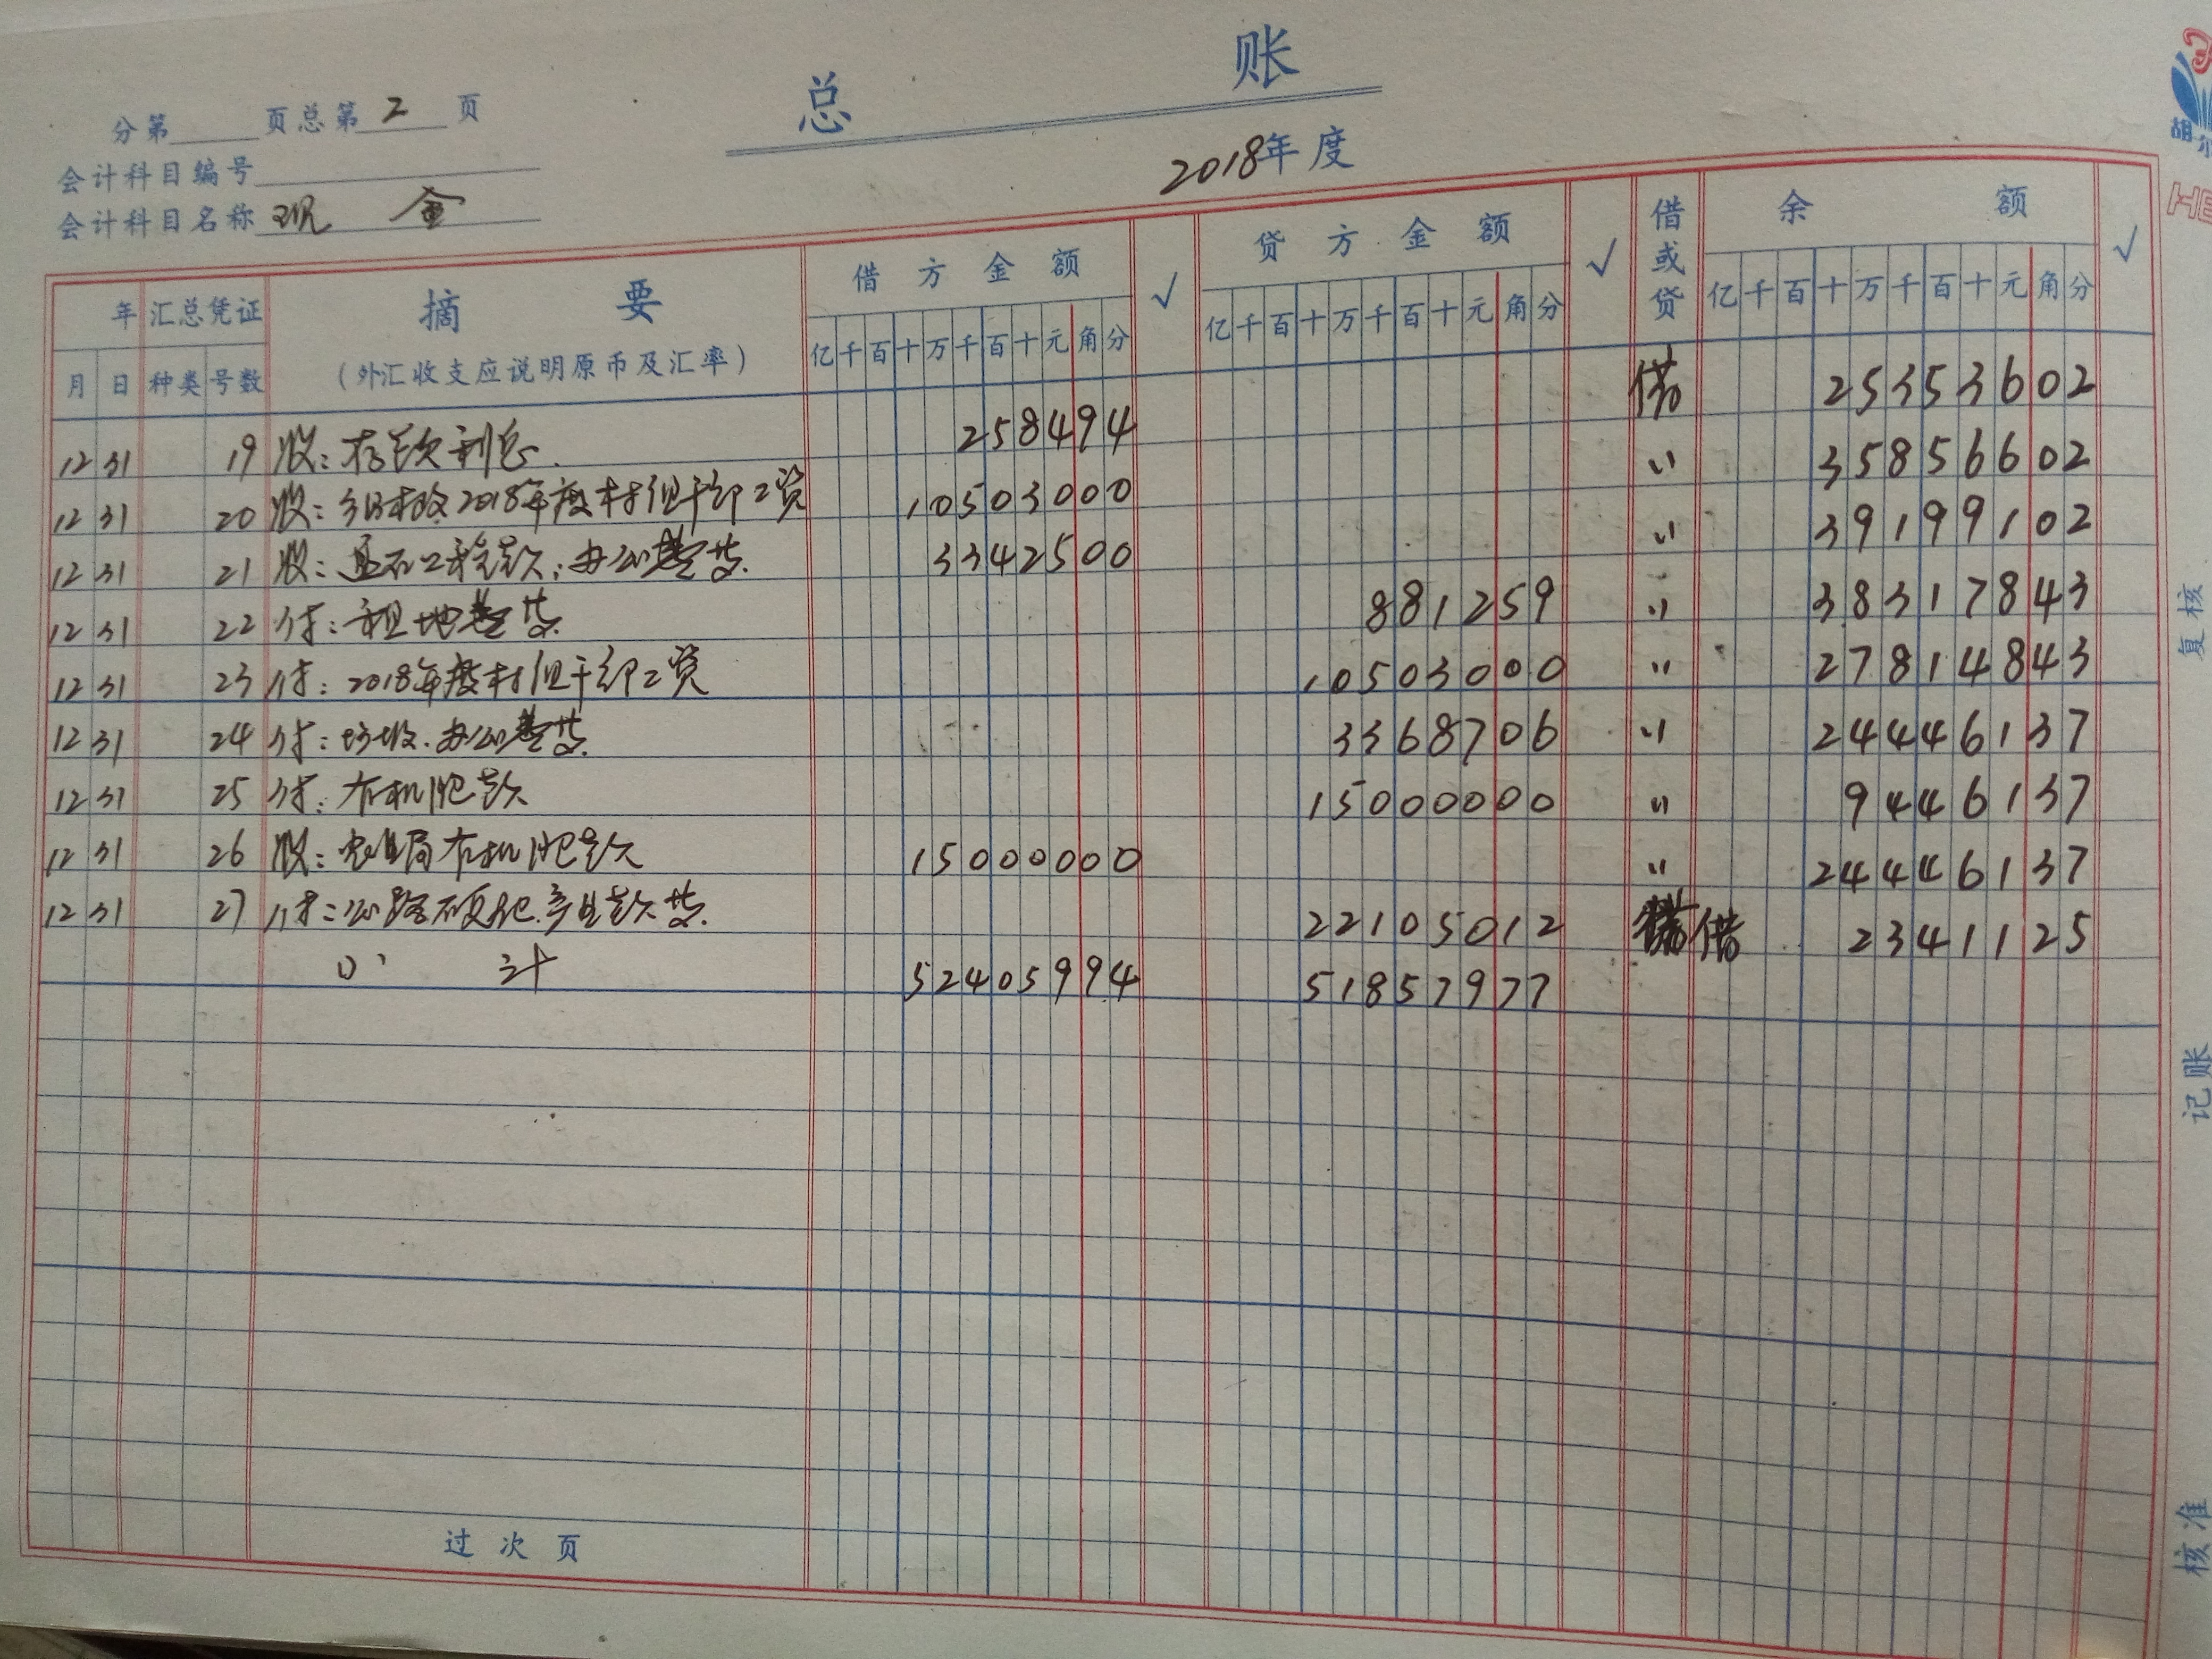 总 账
2018年度
分第 页总第 2 页
会计科目编号
会计科目名称 现 金
年 汇总凭证 摘 要 借方金额 √ 贷方金额 √ 借或贷 余 额 √
月 日 种类 号数 (外汇收支应说明原币及汇率) 亿千百十万千百十元角分 亿千百十万千百十元角分 亿千百十万千百十元角分
12 31 19 收:存款利息. 258494 借 25353602
12 31 20 收:2018年度村组干部工资 10503000 〃 35856602
12 31 21 收:工程款,办公费等. 3342500 〃 39199102
12 31 22 付:租地费等. 881259 〃 38317843
12 31 23 付:2018年度村组干部工资 10503000 〃 27814843
12 31 24 付:垃圾.办公费等. 3368706 〃 24446137
12 31 25 付:有机肥款 15000000 〃 9446137
12 31 26 收:农业局有机肥款 15000000 〃 24446137
12 31 27 付:公路硬化.产业款等. 22105012 借 2341125
小 计 52405994 51857977
过次页
复核
记账
核准
胡
HE